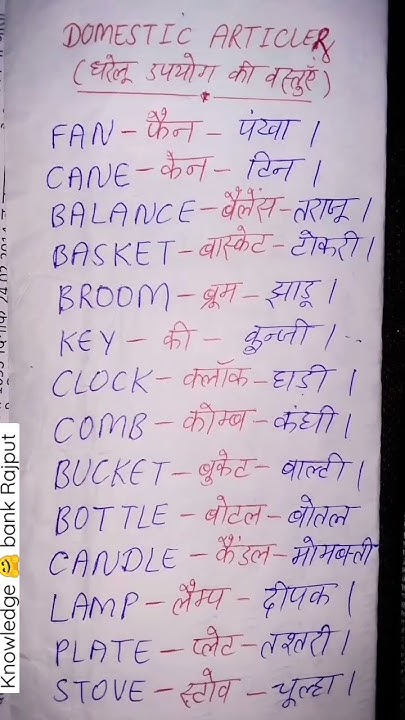 DOMESTIC ARTICLES
(घरेलू उपयोग की वस्तुएँ)
FAN – फैन – पंखा ।
CANE – केन – टिन ।
BALANCE – बैलेंस – तराजू ।
BASKET – बास्केट – टोकरी ।
BROOM – ब्रूम – झाडू ।
KEY – की – कुन्जी ।
CLOCK – क्लॉक – घड़ी ।
COMB – कोम्ब – कंघी ।
BUCKET – बुकेट – बाल्टी ।
BOTTLE – बोटल – बोतल
CANDLE – कैंडल – मोमबत्ती
LAMP – लैम्प – दीपक ।
PLATE – प्लेट – तश्तरी ।
STOVE – स्टोव – चूल्हा ।
Knowledge 😊 bank Rajput